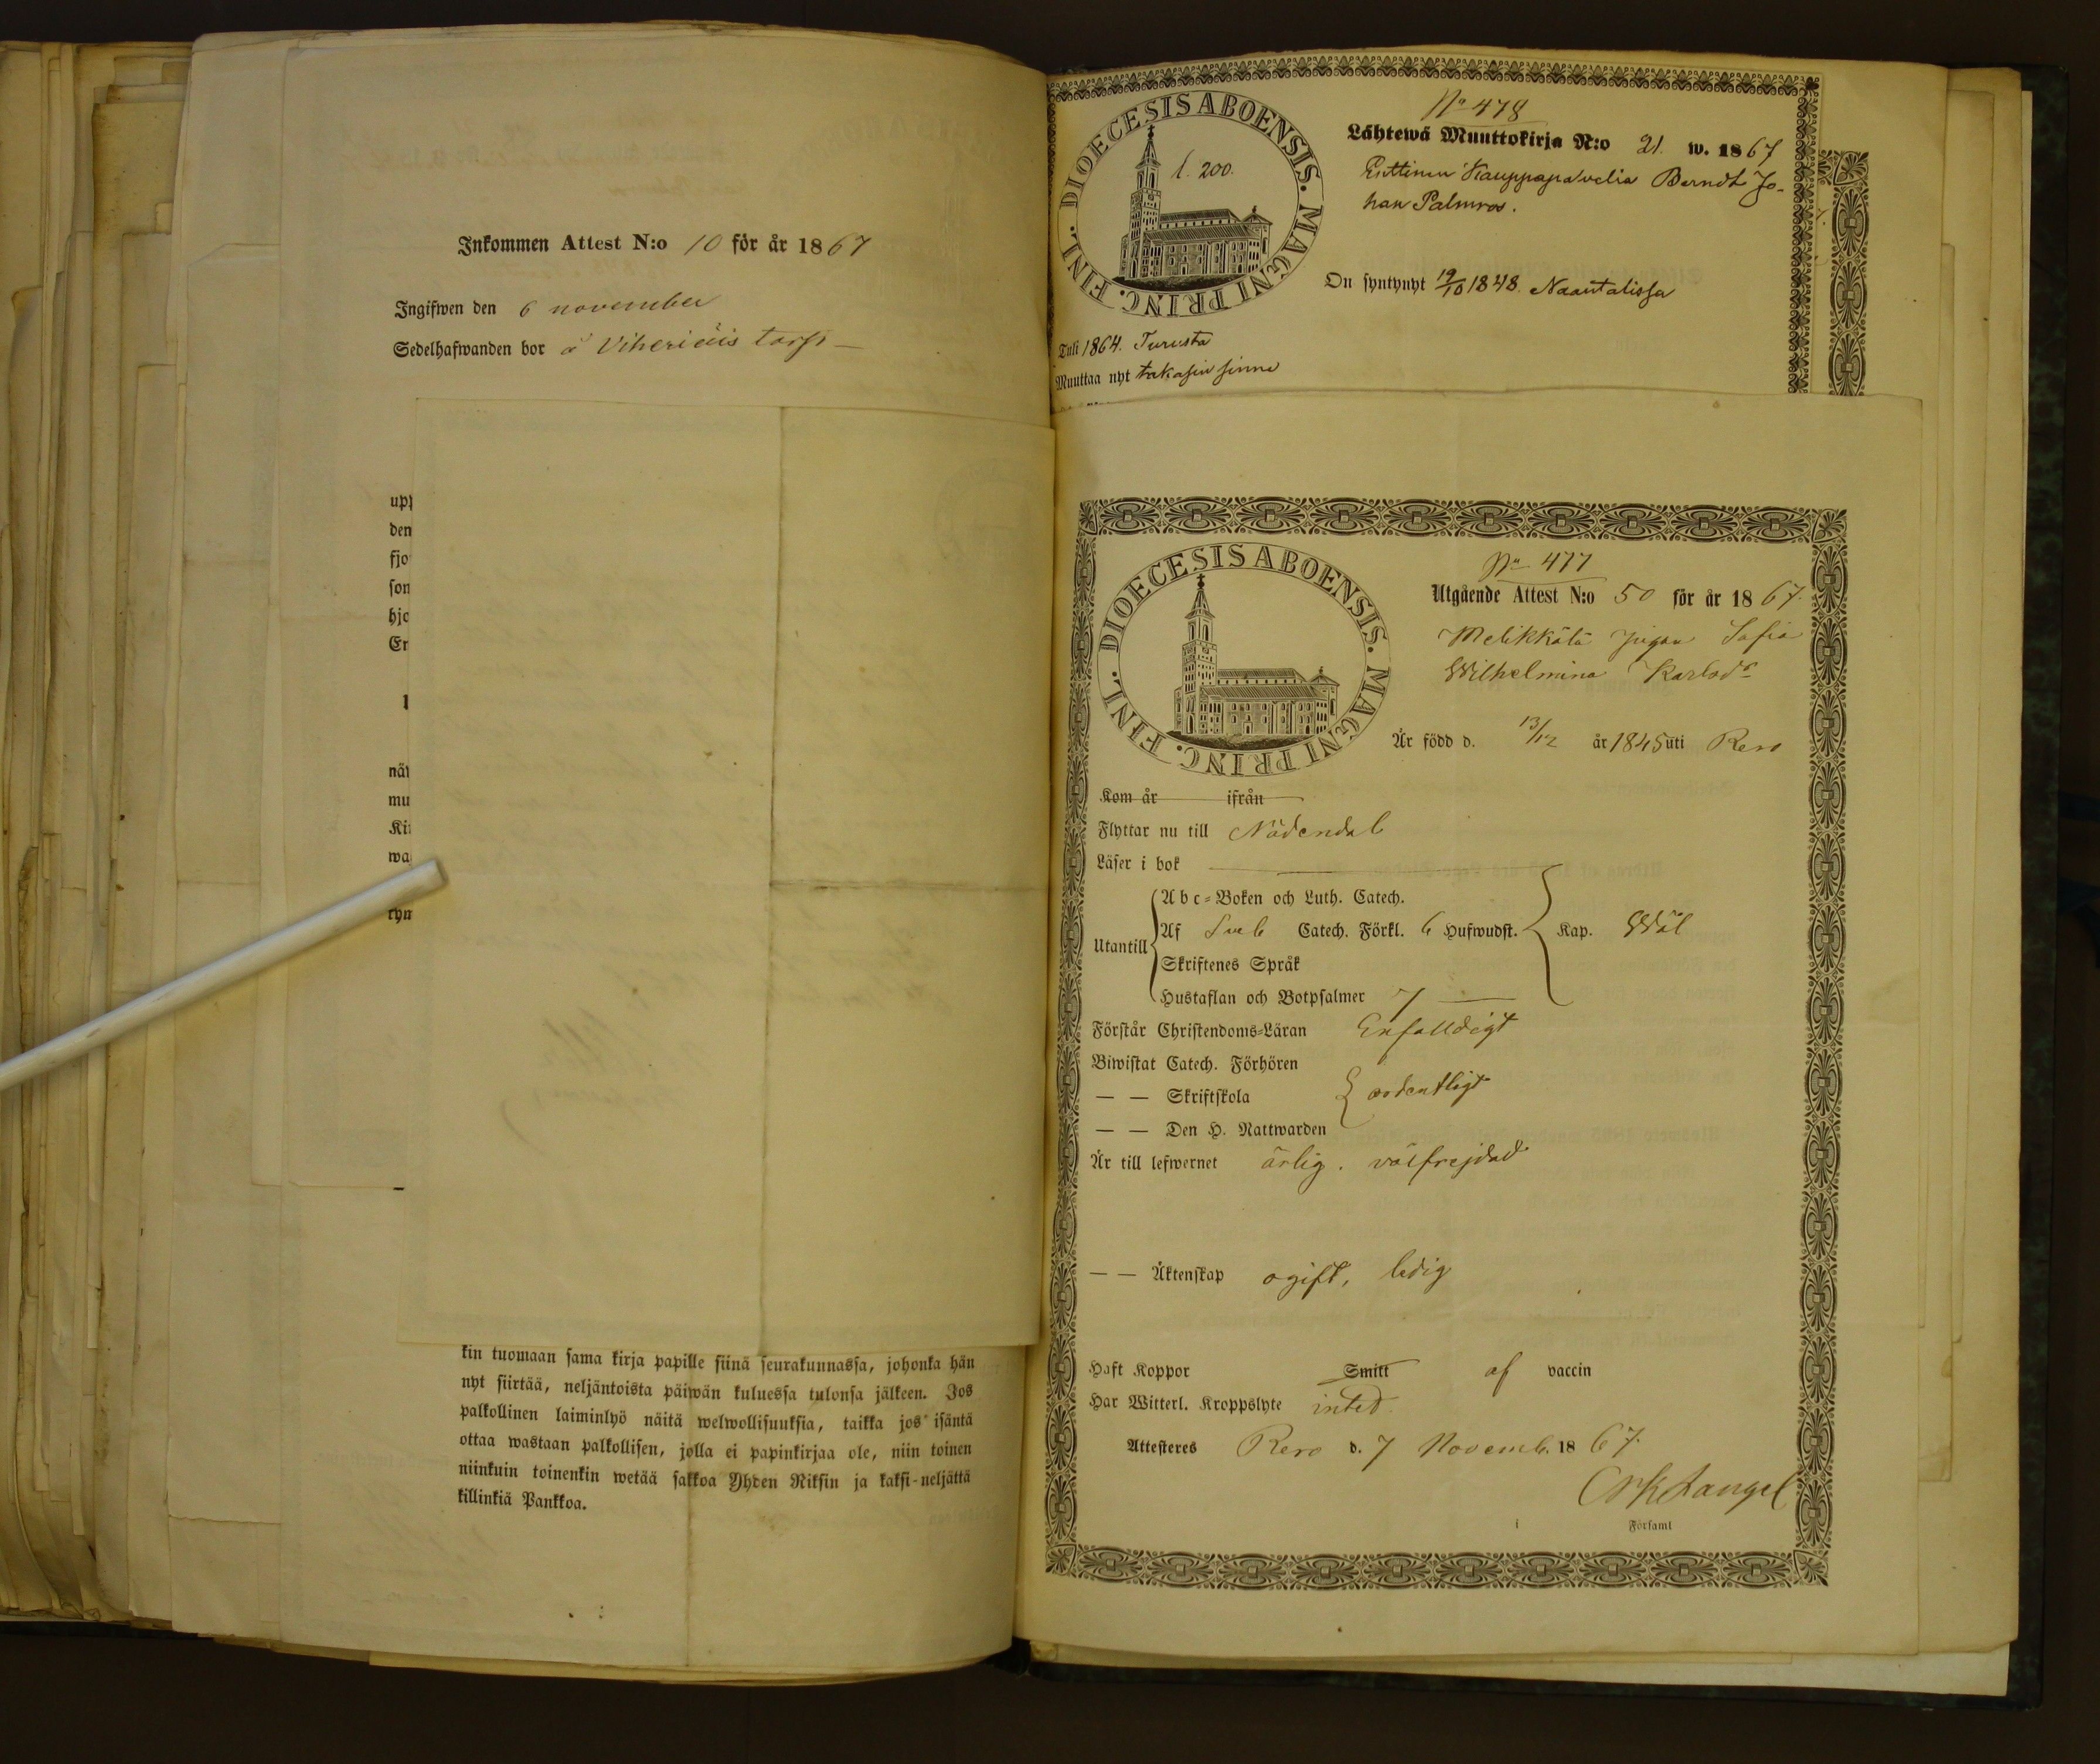 Inkommen Attest N:o 10 för år 1867
Ingifwen den 6 november
Sedelhafwanden bor å Viheriäis torp
upp
den
fjo
son
hjo
Er
1
när
mu
Kir
wa
ryn
kin tuomaan sama kirja papille siinä seurakunnassa, johonka hän
nyt siirtää, neljäntoista päiwän kuluessa tulonsa jälkeen. Jos
palkollinen laiminlyö näitä welwollisuuksia, taikka jos isäntä
ottaa wastaan palkollisen, jolla ei papinkirjaa ole, niin toinen
niinkuin toinenkin wetää sakkoa Yhden Riksin ja kaksi-neljättä
killinkiä Pankkoa.
No 478
DIOECESIS ABOENSIS. MAGNI PRINC. FINL.
l. 200.
Lähtewä Muuttokirja N:o 21. w. 1867
Kauppapalvelia Berndt Jo-
han Palmros.
On syntynyt 19/10 1848. Naantalissa
Tuli 1864. Turusta
Muuttaa nyt takasin sinne
No 477
DIOECESIS ABOENSIS. MAGNI PRINC. FINL.
Utgående Attest N:o 50 för år 1867.
Melikkälä pigan Sofia
Wilhelmina Karlsdr
Är född d. 13/12 år 1845 uti Reso
Kom år ifrån
Flyttar nu till Nådendal
Läser i bok
Utantill
Abc-Boken och Luth. Catech.
Af Sveb Catech. Förkl. 6 Hufwudst. Kap. Wäl
Skriftenes Språk
Hustaflan och Botpsalmer 7
Förstår Christendoms-Läran Enfalldigt
Biwistat Catech. Förhören
— — Skriftskola ordentligt
— — Den H. Nattwarden
Är till lefwernet ärlig. välfrejdad
— — Äktenskap ogift, ledig
Haft Koppor Smitt af vaccin
Har Witterl. Kroppslyte intet.
Attesteres Reso d. 7 Novemb. 1867.
i Församl